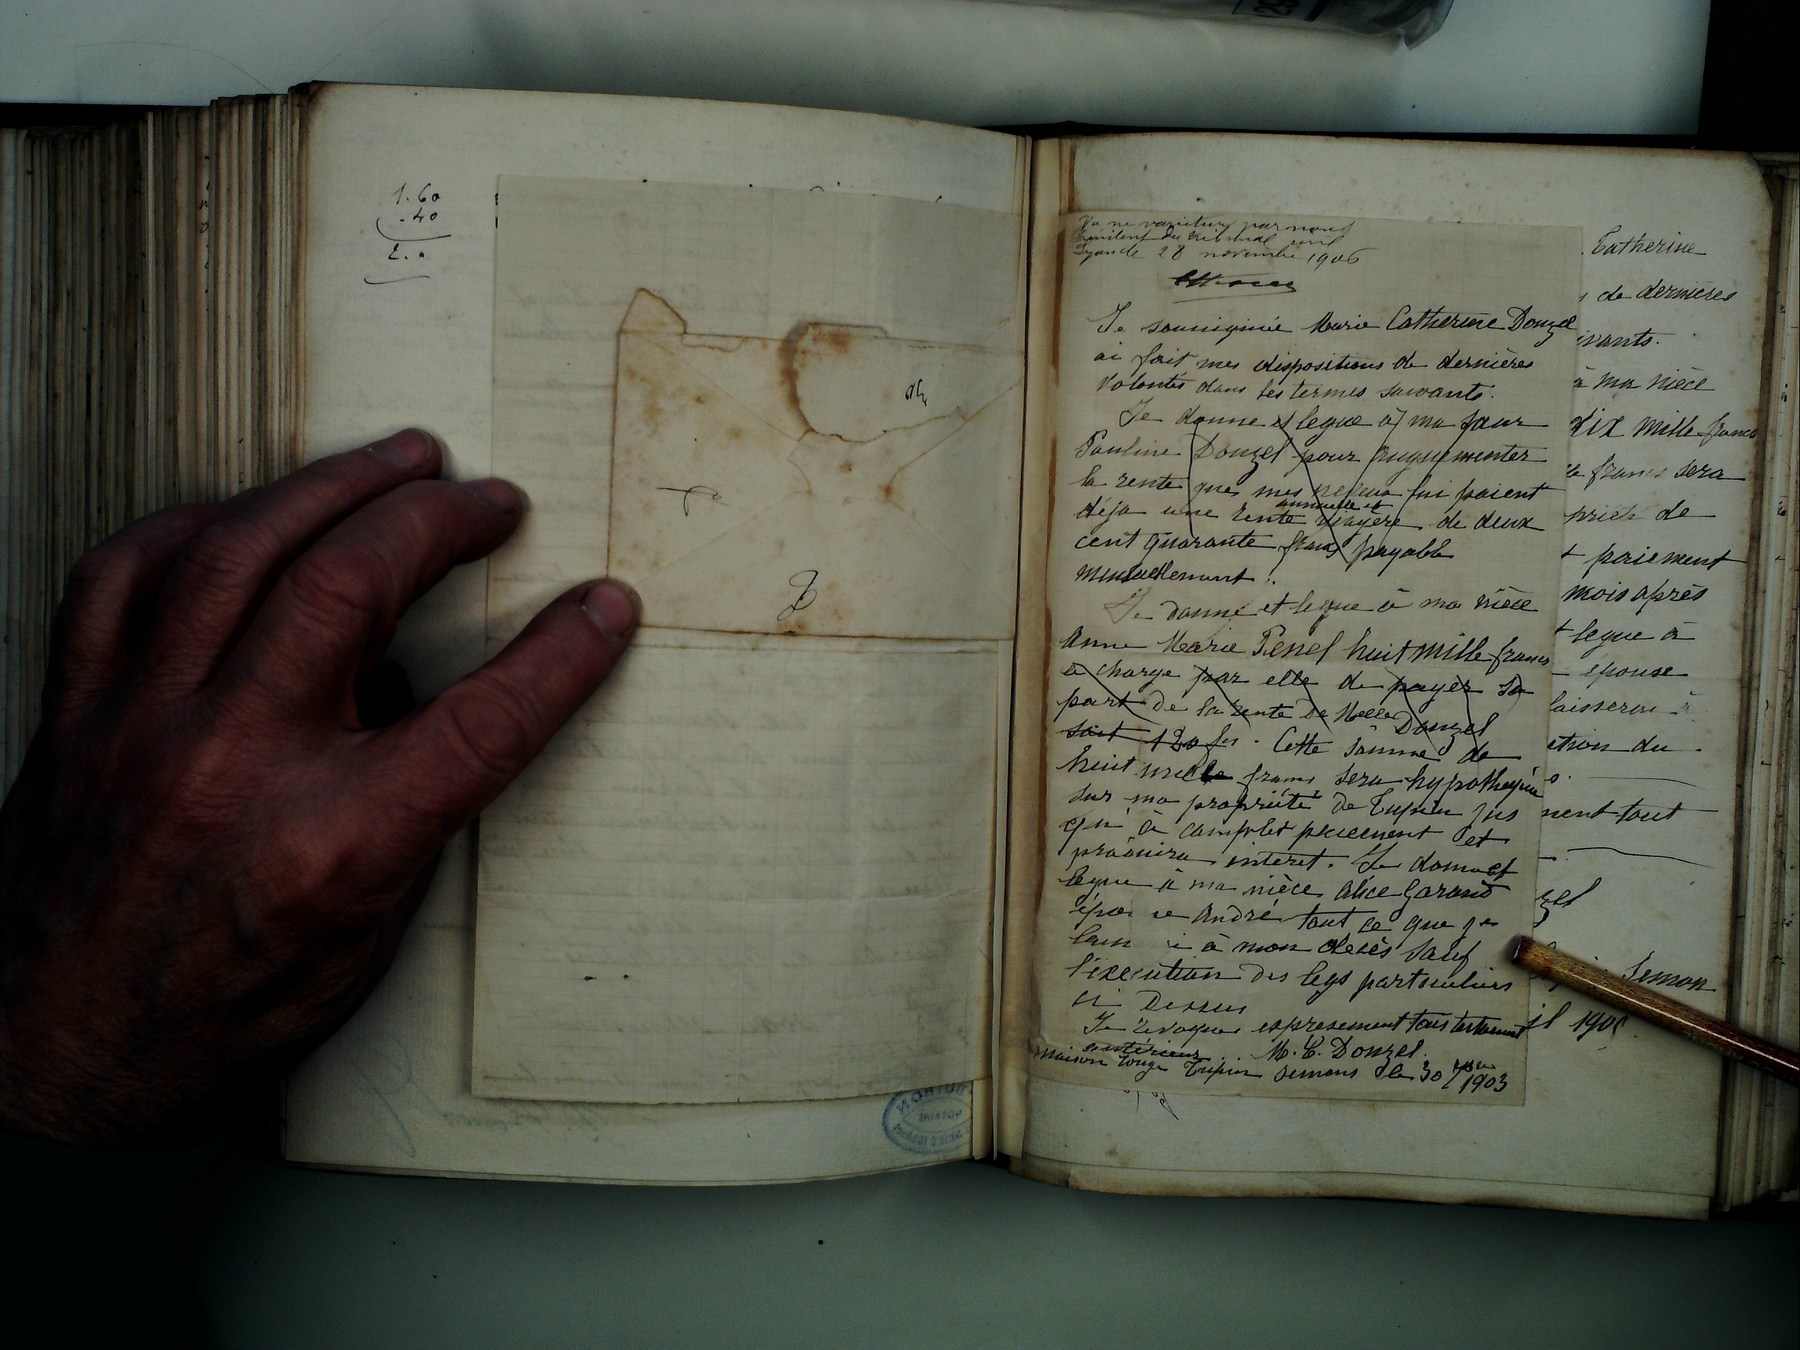 1.60
.40
2.0
Vu ne varietur par nous
Président du tribunal civil
Lyon le 28 novembre 1906
Je soussignée Marie Catherine Donzel
ai fait mes dispositions de dernières
volontés dans les termes suivants.
Je donne et legue à ma sœur
Pauline Donzel pour augmenter
la rente que mes neveux lui paient
déja une rente annuelle et viagère de deux
cent quarante francs payable
mensuellement.
Je donne et legue à ma nièce
Anne Marie huit mille francs
à charge par elle de payer sa
part de la rente de Melle Donzel
soit 120 frs. Cette somme de
huit mille francs sera hypothéquée
sur ma propriété de Tupin jus
qu'à complet paiement et
produira interet. Je donne et
legue à ma nièce Alice Garand
épouse André tout ce que je
à mon décès sauf
l'exécution des legs particuliers
ci dessus
Je révoque expressement tous testament
antérieur. M. C. Donzel.
maison rouge Tupin Semons le 30 1903
Catherine
de dernières
ivants.
à ma nièce
dix mille francs
francs sera
priété de
paiement
mois après
legue à
épouse
laisserai à
ction du
ment tout
zel
Semon
il 190